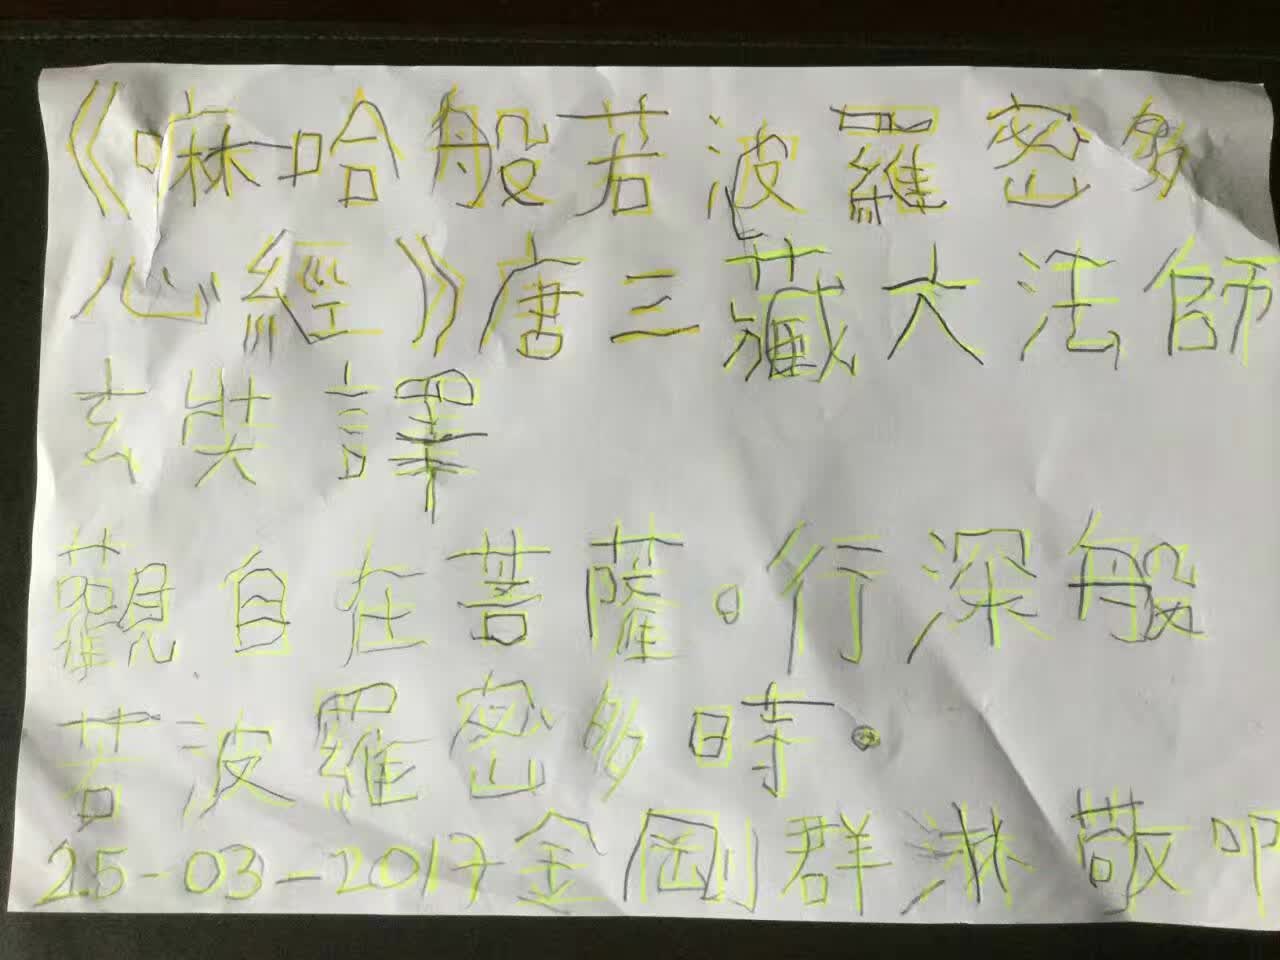 《嘛哈般若波羅密多
心經》唐三藏大法師
玄奘譯
觀自在菩薩。行深般
若波羅密多時。
25-03-2017金剛群淋敬叩